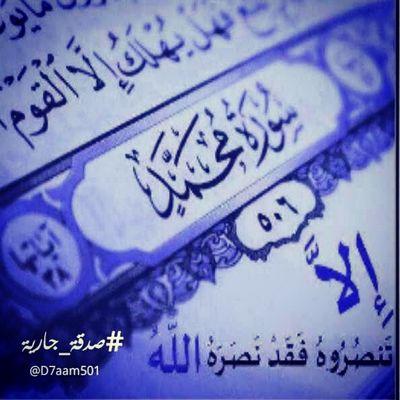 فَهَلْ يُهْلَكُ إِلَّا ٱلْقَوْمُ
سُورَةُ مُحَمَّدٍ
آياتها
٣٨
٥٠٦
إِلَّا
تَنصُرُوهُ فَقَدْ نَصَرَهُ اللَّهُ
#صدقة_جارية
@D7aam501